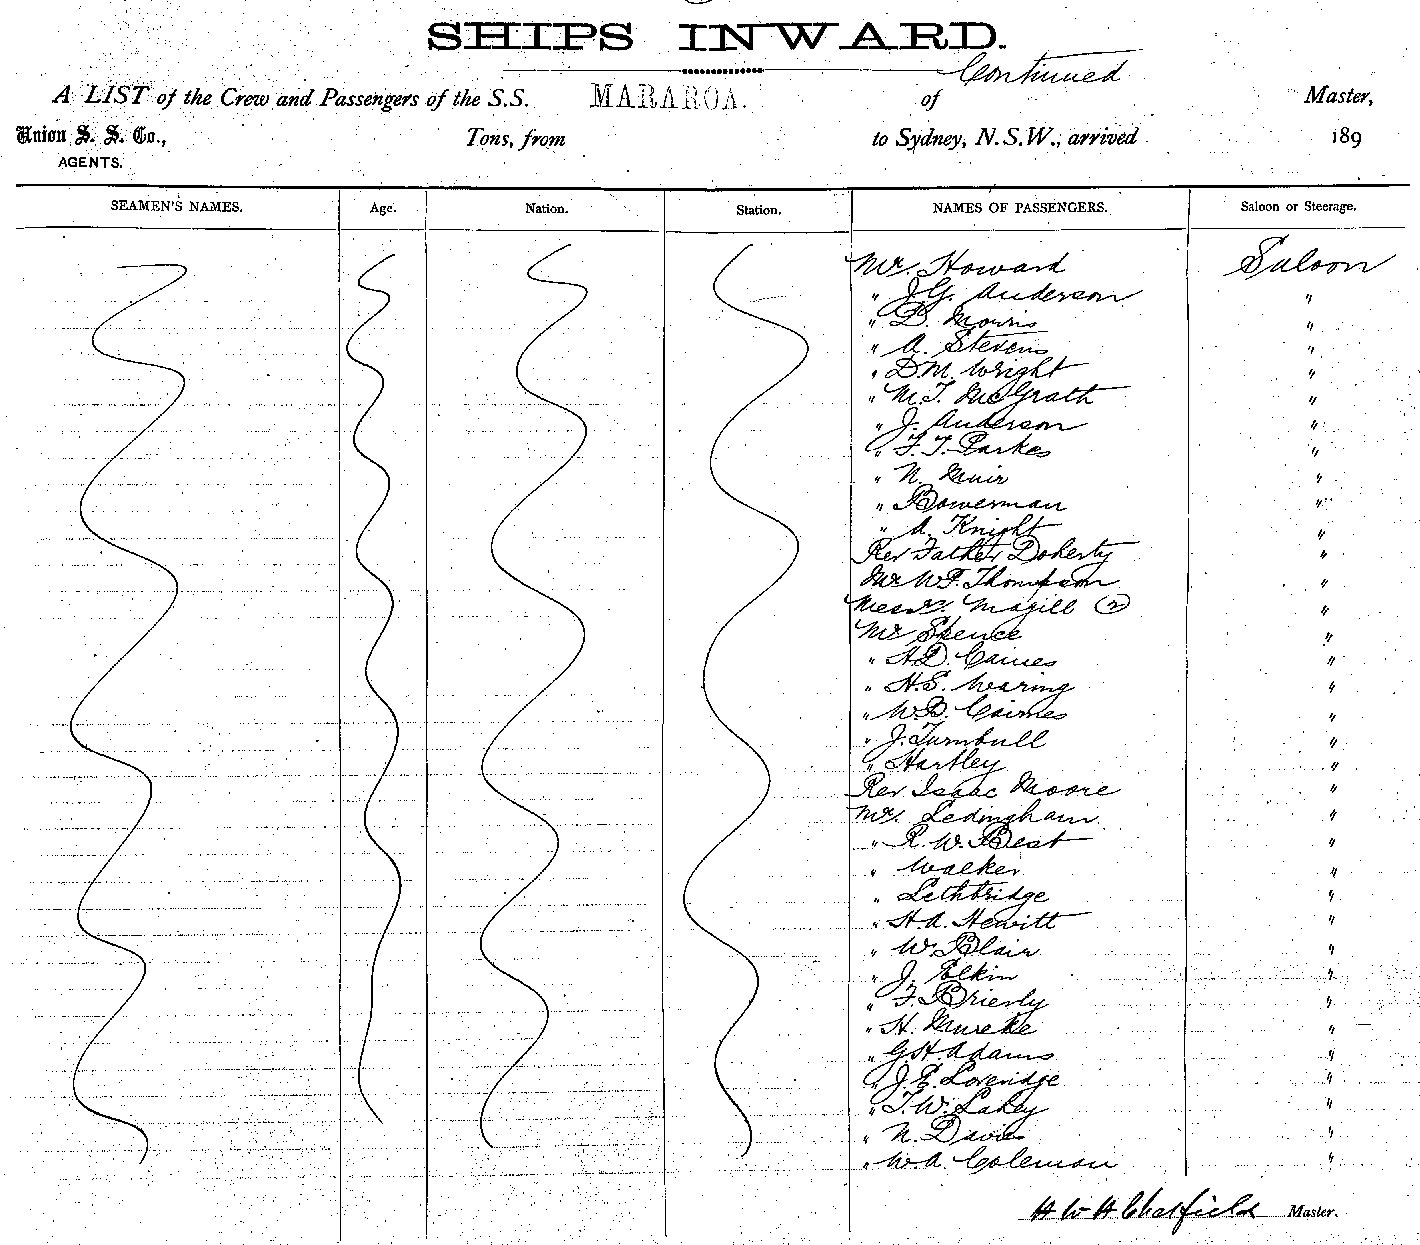 SHIPS INWARD.
Continued
A LIST of the Crew and Passengers of the S.S. MARAROA. of Master,
Union S. S. Co., Tons, from to Sydney, N.S.W., arrived 189
AGENTS.
SEAMEN'S NAMES. Age. Nation. Station. NAMES OF PASSENGERS. Saloon or Steerage.
Mr. Howard Saloon
" J.G. Anderson "
" D. Morris "
" A. Stevens "
" D.M. Wright "
" M.T. McGrath "
" J. Anderson "
" F.T. Parkes "
" N. Muir "
" Bowerman "
" A. Knight "
Rev Father Doherty "
Mr W.F. Thompson "
Messrs. Magill (2) "
Mr Spence "
" H.D. Caines "
" H.S. Waring "
" W.B. Cairnes "
" J. Turnbull "
" Hartley "
Rev. Isaac Moore "
Mr. Ledingham "
" R.W. Best "
" Walker "
" Lethbridge "
" H.A. Hewitt "
" W. Blair "
" J. "
" F. Brierly "
" H. "
" G.H. Adams "
" J.E. Loveridge "
" T.W. Lakey "
" N. Davies "
" W.A. Coleman "
H W H Chatfield Master.